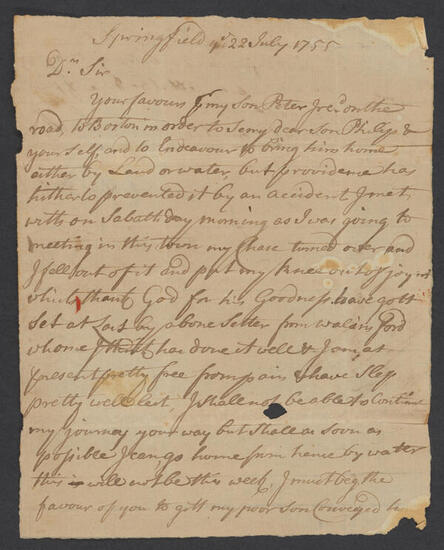 Springfield ye 22 July 1755
Dr. Sir
Your favours by my son Peter I recd. on the
road, to Boston in order to Se my dear Son Philip &
your self, and to Endeavour to bring him home
either by Land or water, but providence has
hitherto prevented it by an accident I met
with on Sabath day morning as I was going to
meeting in this town my Chase turned over and
I fell out of it and put my knee out of joynt
which thank God for his Goodness have gott
Set at Last by a bone Setter from
whome I think has done it well & I am at
present pretty free from pain & have Slep
pretty well last, I shall not be able to Continue
my journey your way but shall as soon as
possible I can go home from hence by water
this will not be this week, I must beg the
favour of you to gitt my poor son Conveyed